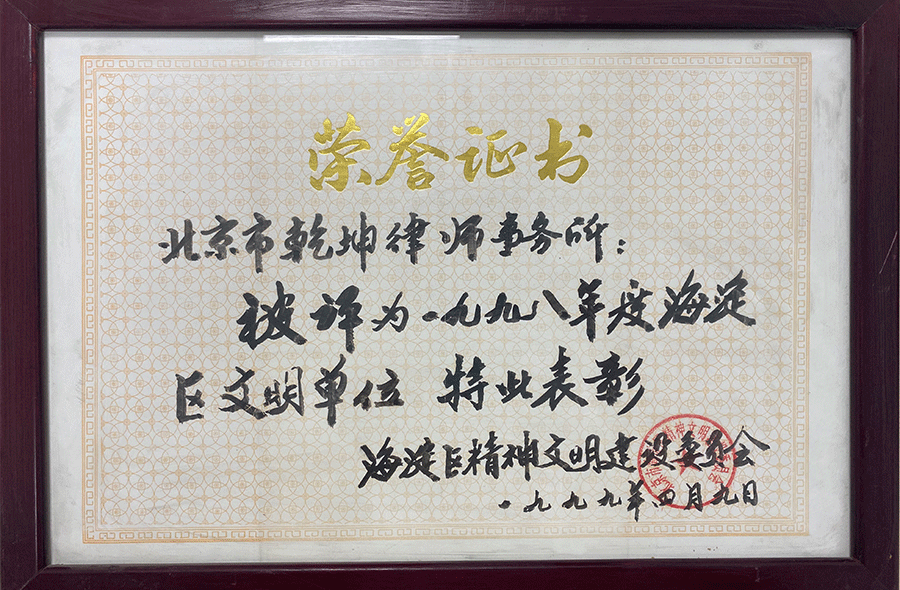 荣誉证书
北京市乾坤律师事务所：
被评为一九九八年度海淀
区文明单位 特此表彰
海淀区精神文明建设委员会
一九九九年四月九日